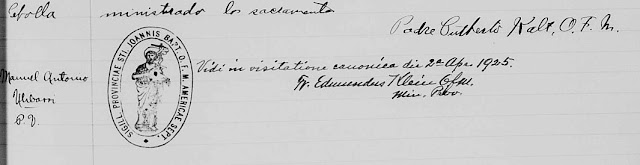 ministrado los sacramentos
Padre Cutberto Kalt, O. F. M.
SIGILL. PROVINCIAE STI. JOANNIS BAPT. O. F. M. AMERICAE SEPT.
Vidi in visitatione canonica die 2a Apr. 1925.
Fr. Edmundus Klein Ofm.
Min. Prov.
Manuel Antonio
P. V.